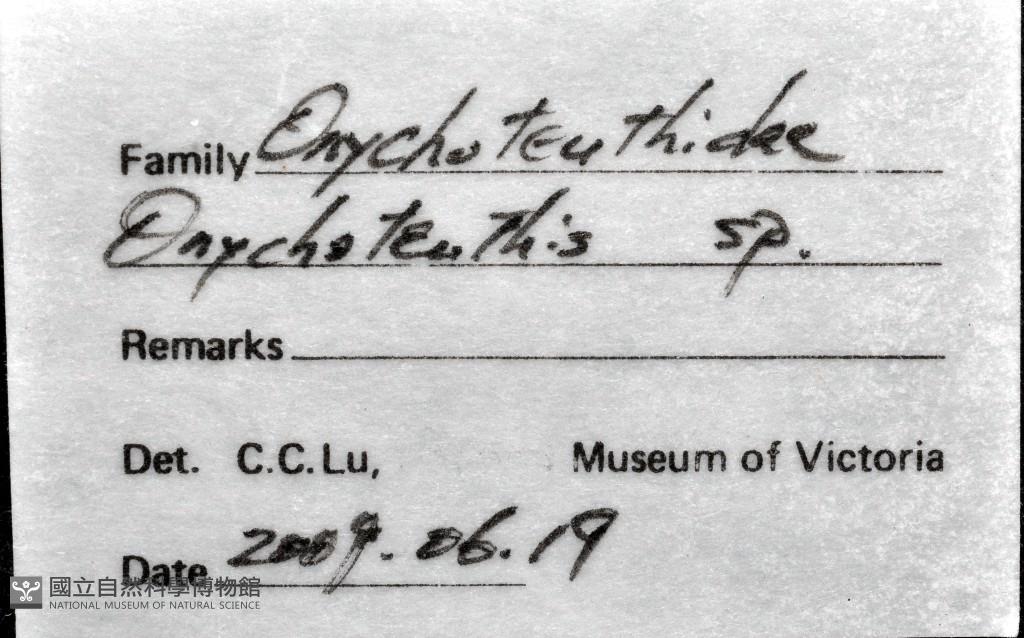 Family Onychoteuthidae
Onychoteuthis sp.
Remarks
Det. C.C. Lu, Museum of Victoria
Date 2009.06.19
國立自然科學博物館
NATIONAL MUSEUM OF NATURAL SCIENCE